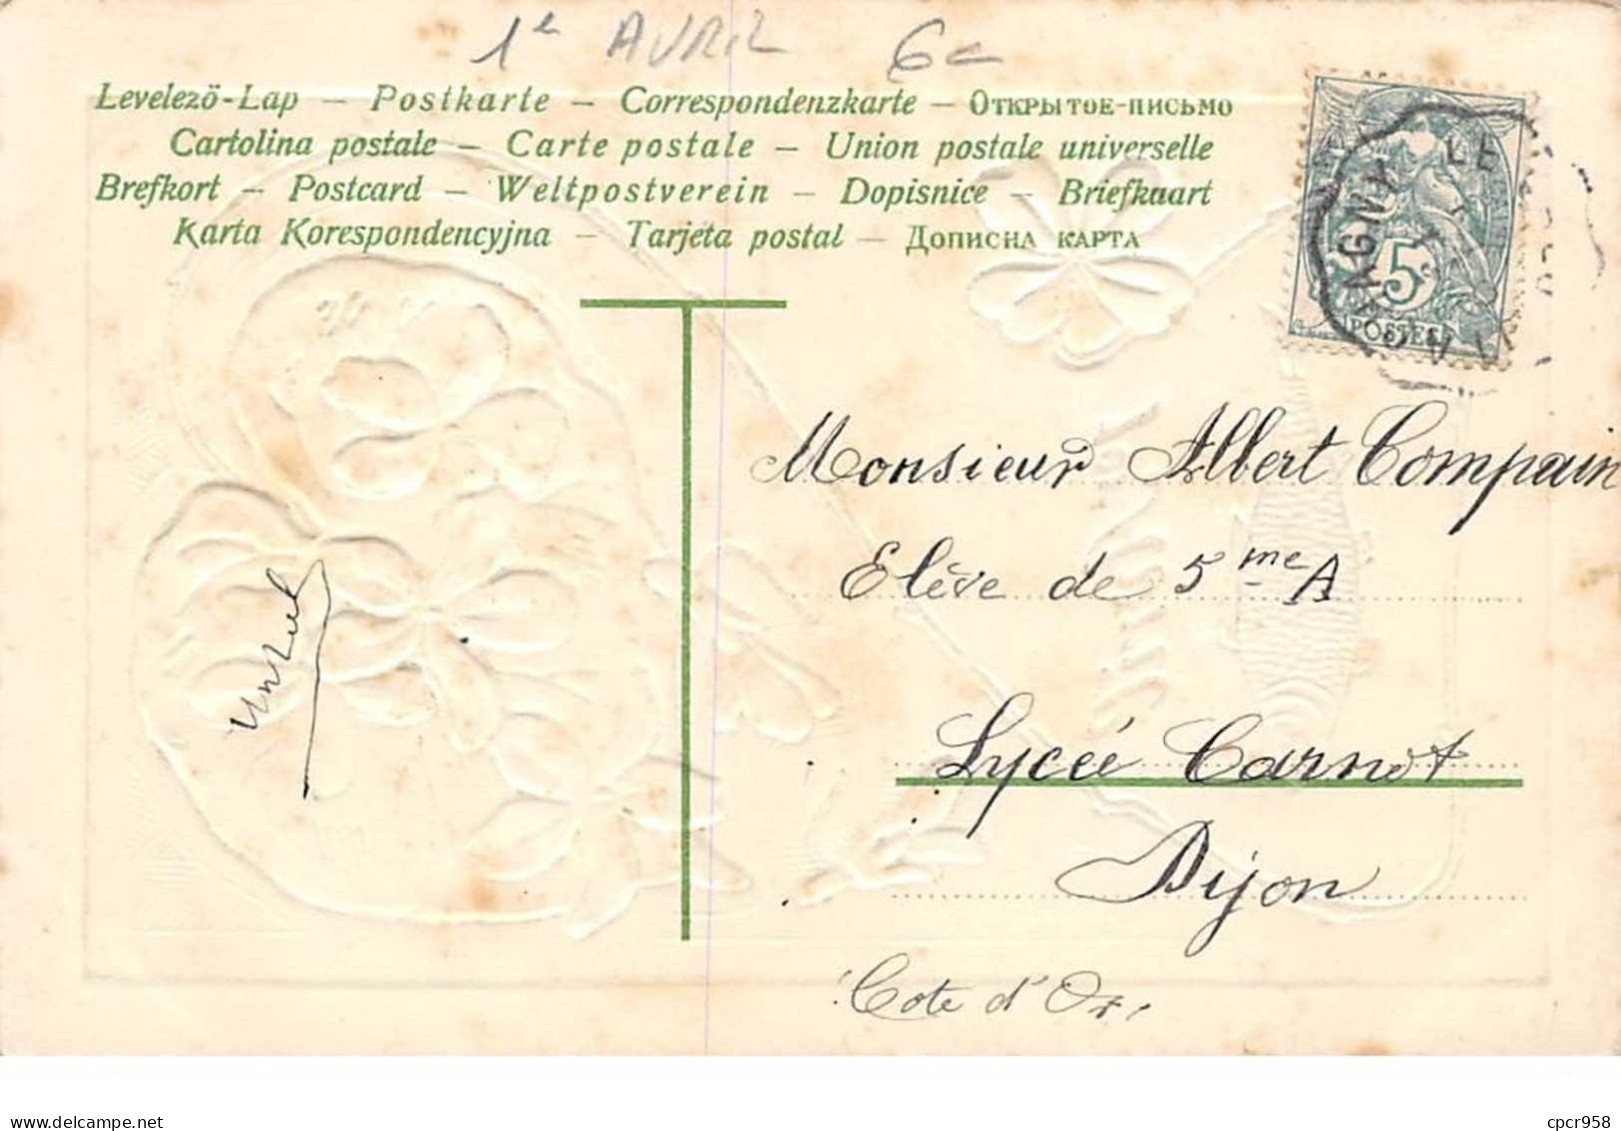 1e AVRIL 6c
Levelezö-Lap – Postkarte – Correspondenzkarte – Открытое-письмо
Cartolina postale – Carte postale – Union postale universelle
Brefkort – Postcard – Weltpostverein – Dopisnice – Briefkaart
Karta Korespondencyjna – Tarjeta postal – Дописна карта
LE
5c
POSTES
Monsieur Albert Compain
Elève de 5me A
Lycée Carnot
Dijon
Cote d'Or
cpcr958